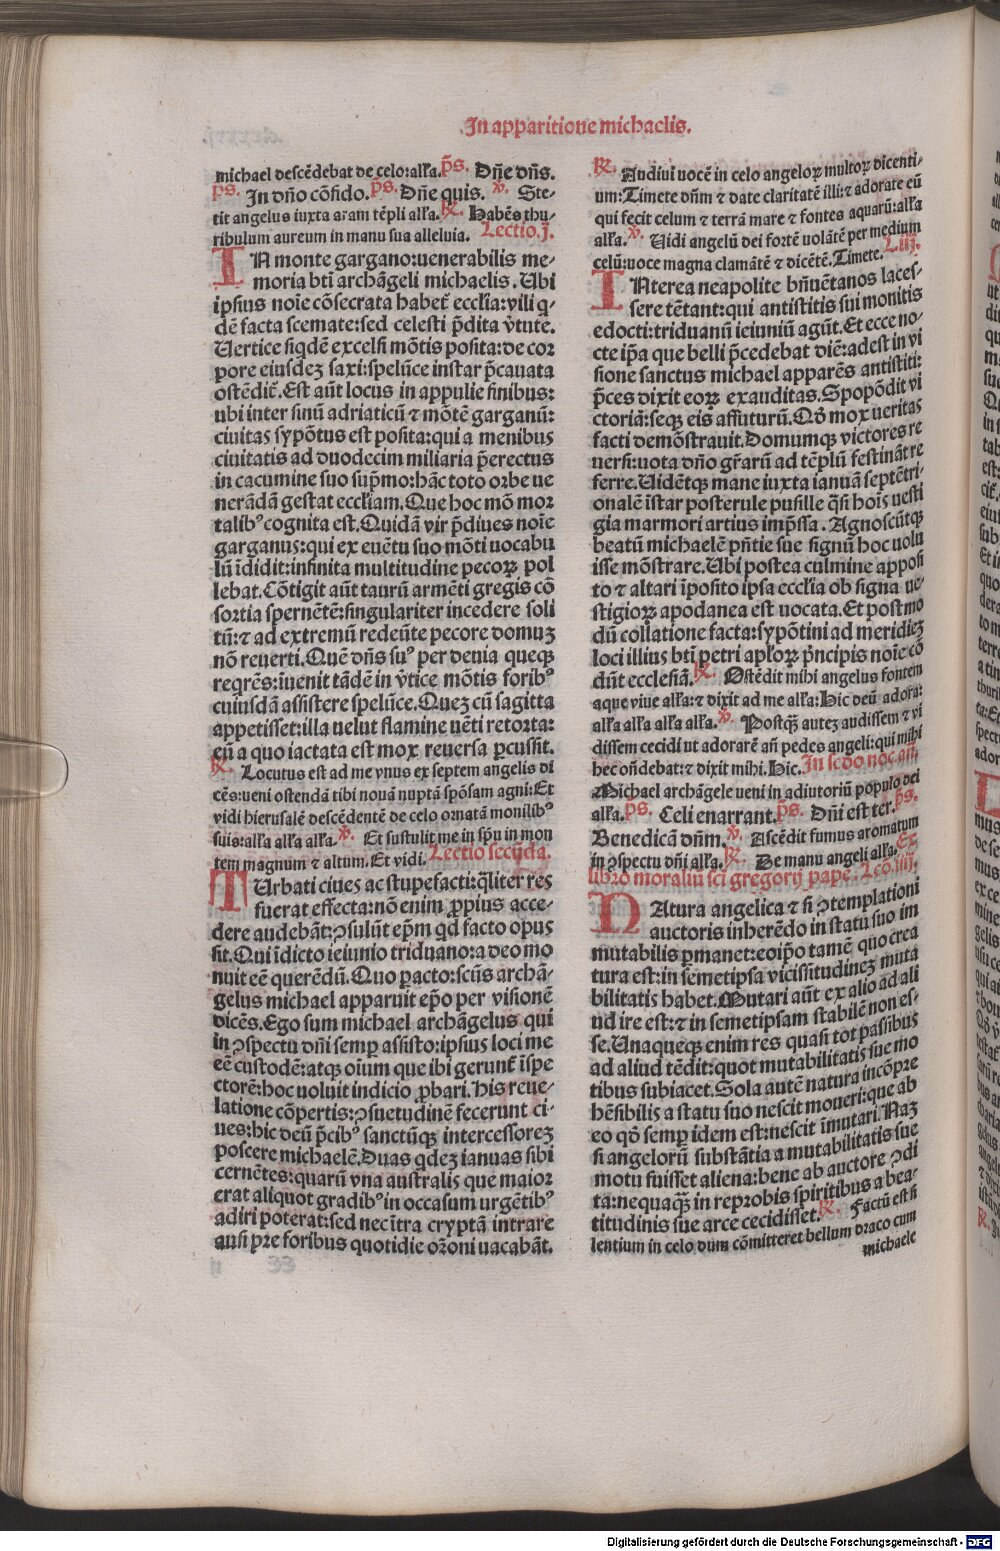 In apparitione michaelis.
michael descēdebat de celo:alľa. p̄s. Dn̄e dn̄s.
p̄s. In dn̄o cōfido. p̄s. Dn̄e quis. v̄. Ste-
tit angelus iuxta aram tēpli alľa. ℟. Habēs thu-
ribulum aureum in manu sua alleluia. Lectio.j.
IN monte gargano:uenerabilis me-
moria bti̅ archāgeli michaelis. Ubi
ipsius noi̅e cōsecrata habet̄ ecclīa:vili q-
dē facta scemate:sed celesti p̄dita v̄tute.
Uertice siqdē excelsi mōtis posita:de cor
pore eiusdez saxi:spelūce instar p̄cauata
ostēdit̄. Est aūt locus in appulie finibus:
ubi inter sinū adriaticū ⁊ mōtē garganū:
ciuitas sypōtus est posita:qui a menibus
ciuitatis ad duodecim miliaria p̄erectus
in cacumine suo sup̄mo:hāc toto orbe ue
nerādā gestat eccl̄iam. Que hoc mō mor
talibꝰ cognita est. Quidā vir p̄diues noi̅e
garganus:qui ex euētu suo mōti uocabu
lū īdidit:infinita multitudine pecoꝝ pol
lebat. Cōtigit aūt taurū armēti gregis cō
sortia spernētē:singulariter incedere soli
tū:⁊ ad extremū redeūte pecore domuz
nō reuerti. Quē dn̄s suꝰ per deuia queqꝫ
reqrēs:īuenit tādē in v̄tice mōtis foribꝰ
cuiusdā assistere spelūce. Quez cū sagitta
appetisset:illa uelut flamine uēti retorta:
eū a quo iactata est mox reuersa ꝑcussit.
℟. Locutus est ad me vnus ex septem angelis di
cēs:ueni ostendā tibi nouā nuptā spōsam agni:Et
vidi hierusalē descēdentē de celo ornatā monilibꝰ
suis:alľa alľa alľa. v̄. Et sustulit me in sp̄u in mon
tem magnum ⁊ altum. Et vidi. Lectio secūda.
TUrbati ciues ac stupefacti:q̄liter res
fuerat effecta:nō enim ꝓpius acce-
dere audebāt:ꝯsulūt ep̄m qd facto opus
sit. Qui īdicto ieiunio triduano:a deo mo
nuit eē querēdū. Quo ꝑacto:scūs archā-
gelus michael apparuit ep̄o per visionē
dicēs. Ego sum michael archāgelus qui
in ꝯspectu dn̄i semꝑ assisto:ipsius loci me
eē custodē:atqꝫ oium que ibi gerunt̄ īspe
ctorē:hoc uoluit indicio ꝓbari. His reue-
latione cōpertis:ꝯsuetudinē fecerunt ci-
ues:hic deū p̄cibꝰ sanctūqꝫ intercessorez
poscere michaelē. Duas qdez ianuas sibi
cernētes:quarū vna australis que maior
erat aliquot gradibꝰ in occasum urgētibꝰ
adiri poterat:sed nec ītra cryptā intrare
ausi pre foribus quotidie or̄oni uacabāt.
℟. Audiui uocē in celo angeloꝝ multoꝝ dicenti-
um:Timete dn̄m ⁊ date claritatē illi:⁊ adorate eū
qui fecit celum ⁊ terrā mare ⁊ fontes aquarū:alľa
alľa. v̄. Uidi angelū dei fortē uolātē per medium
celū:uoce magna clamātē ⁊ dicētē. Timete. L.iij.
INterea neapolite bn̄uētanos laces-
sere tētant:qui antistitis sui monitis
edocti:triduanū ieiuniū agūt. Et ecce no-
cte ip̄a que belli p̄cedebat diē:adest in vi
sione sanctus michael apparēs antistiti:
p̄ces dixit eoꝝ exauditas. Spopōdit vi
ctoriā:seqꝫ eis affuturū. Qd̄ mox ueritas
facti demōstrauit. Domumqꝫ victores re
uersi:uota dn̄o gr̄arū ad tēplū festināt re
ferre. Uidētqꝫ mane iuxta ianuā septētri-
onalē īstar posterule pusille q̄si hoīs uesti
gia marmori artius imp̄ssa. Agnoscūtqꝫ
beatū michaelē pn̄tie sue signū hoc uolu
isse mōstrare. Ubi postea culmine apposi
to ⁊ altari īposito ipsa ecclīa ob signa ue-
stigioꝝ apodanea est uocata. Et postmo
dū collatione facta:sypōtini ad meridiez
loci illius bti̅ petri apľoꝝ p̄ncipis noi̅e cō
dūt ecclesiā. ℟. Ostēdit mihi angelus fontem
aque viue alľa:⁊ dixit ad me alľa:Hic deū adora:
alľa alľa alľa alľa. v̄. Postq̄ autez audissem ⁊ vi
dissem cecidi ut adorarē an̄ pedes angeli:qui mihi
hec on̄debat:⁊ dixit mihi. Hic. In scd̄o noc.an̄.
Michael archāgele ueni in adiutoriū populo dei
alľa. p̄s. Celi enarrant. p̄s. Dn̄i est ter. p̄s.
Benedicā dn̄m. v̄. Ascēdit fumus aromatum
in ꝯspectu dn̄i alľa. ℟. De manu angeli alľa. Ex
libro moraliū sci̅ gregorij pape. Lco̅.iiij.
NAtura angelica ⁊ si ꝯtemplationi
auctoris inherēdo in statu suo im
mutabilis ꝑmanet:eoip̄o tamē quo crea
tura est:in semetipsa vicissitudinez muta
bilitatis habet. Mutari aūt ex alio ad ali
ud ire est:⁊ in semetipsam stabilē non es-
se. Unaqueqꝫ enim res quasi tot passibus
ad aliud tēdit:quot mutabilitatis sue mo
tibus subiacet. Sola autē natura incōpre
hēsibilis a statu suo nescit moueri:que ab
eo qd̄ semꝑ idem est:nescit īmutari. Naz
si angelorū substātia a mutabilitatis sue
motu fuisset aliena:bene ab auctore ꝯdi
ta:nequaq̄ in reprobis spiritibus a bea-
titudinis sue arce cecidisset. ℟. Factū est si
lentium in celo dum cōmitteret bellum draco cum
michaele
Digitalisierung gefördert durch die Deutsche Forschungsgemeinschaft - DFG